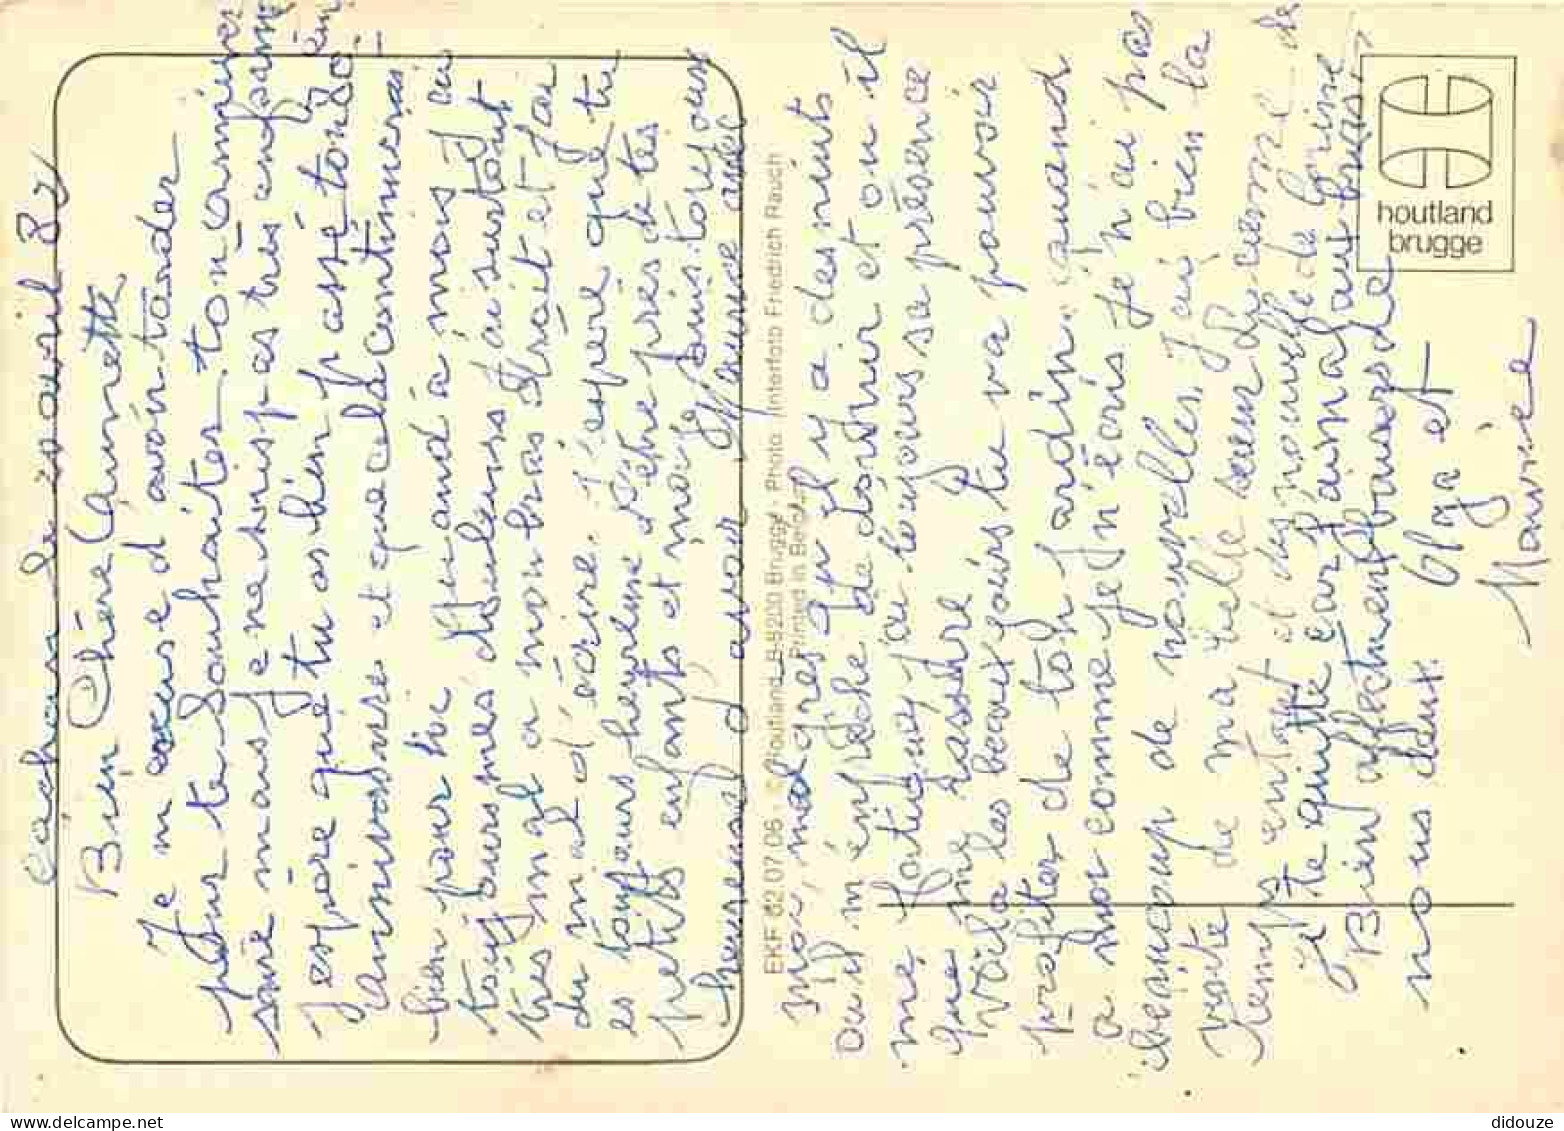 cachan le 20 avril 82
Bien Chère Laurette
Je m'excuse d'avoir tarder
pour te Souhaiter ton anniver
saire mais Je ne suis pas très en
J'espère que tu as bien passé ton 80 èm
anniversaire et que cela continuera
bien pour toi Quand à mous J'ai
toujours mes douleurs J'ai surtout
très mal a mon bras droit et J'ai
du mal d'écrire. J'espere que tu
es toujours heureuse d'être près de tes
petits enfants et moi Je suis toujours
heureuse d'avoir Maurice avec
moi, malgres qu'il y a des nuits
Ou il m'empêche de dormir et ou il
me fatigue j'ai toujours sa présence
que me rassure
Voila les beaux jours tu va pouvoir
profiter de ton Jardin quand
a moi comme je n'écris Je n'ai pas
beaucoup de nouvelles. J'ai bien la
visite de ma belle sœur de
Temps en temps et des nouvelles de Louise
Je te quitte car J'ai mal au bras,
Bien affectueux baisers de
nous deux. Olga et
Maurice
EKF 82 07 06 - © Houtland B-8200 Brugge - Photo: Interfoto Friedrich Rauch
Printed in Belgium
houtland
brugge
didouze